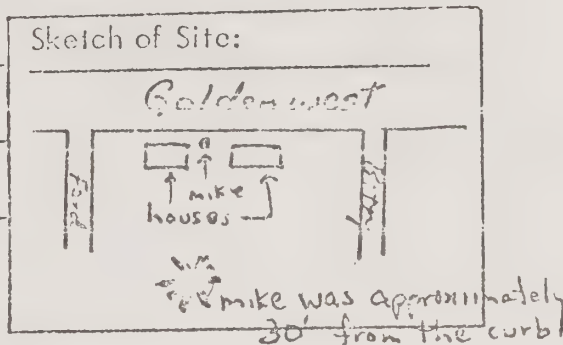 Sketch of Site:
Goldenwest
Ford
mike
houses
mike was approximately
30' from the curb